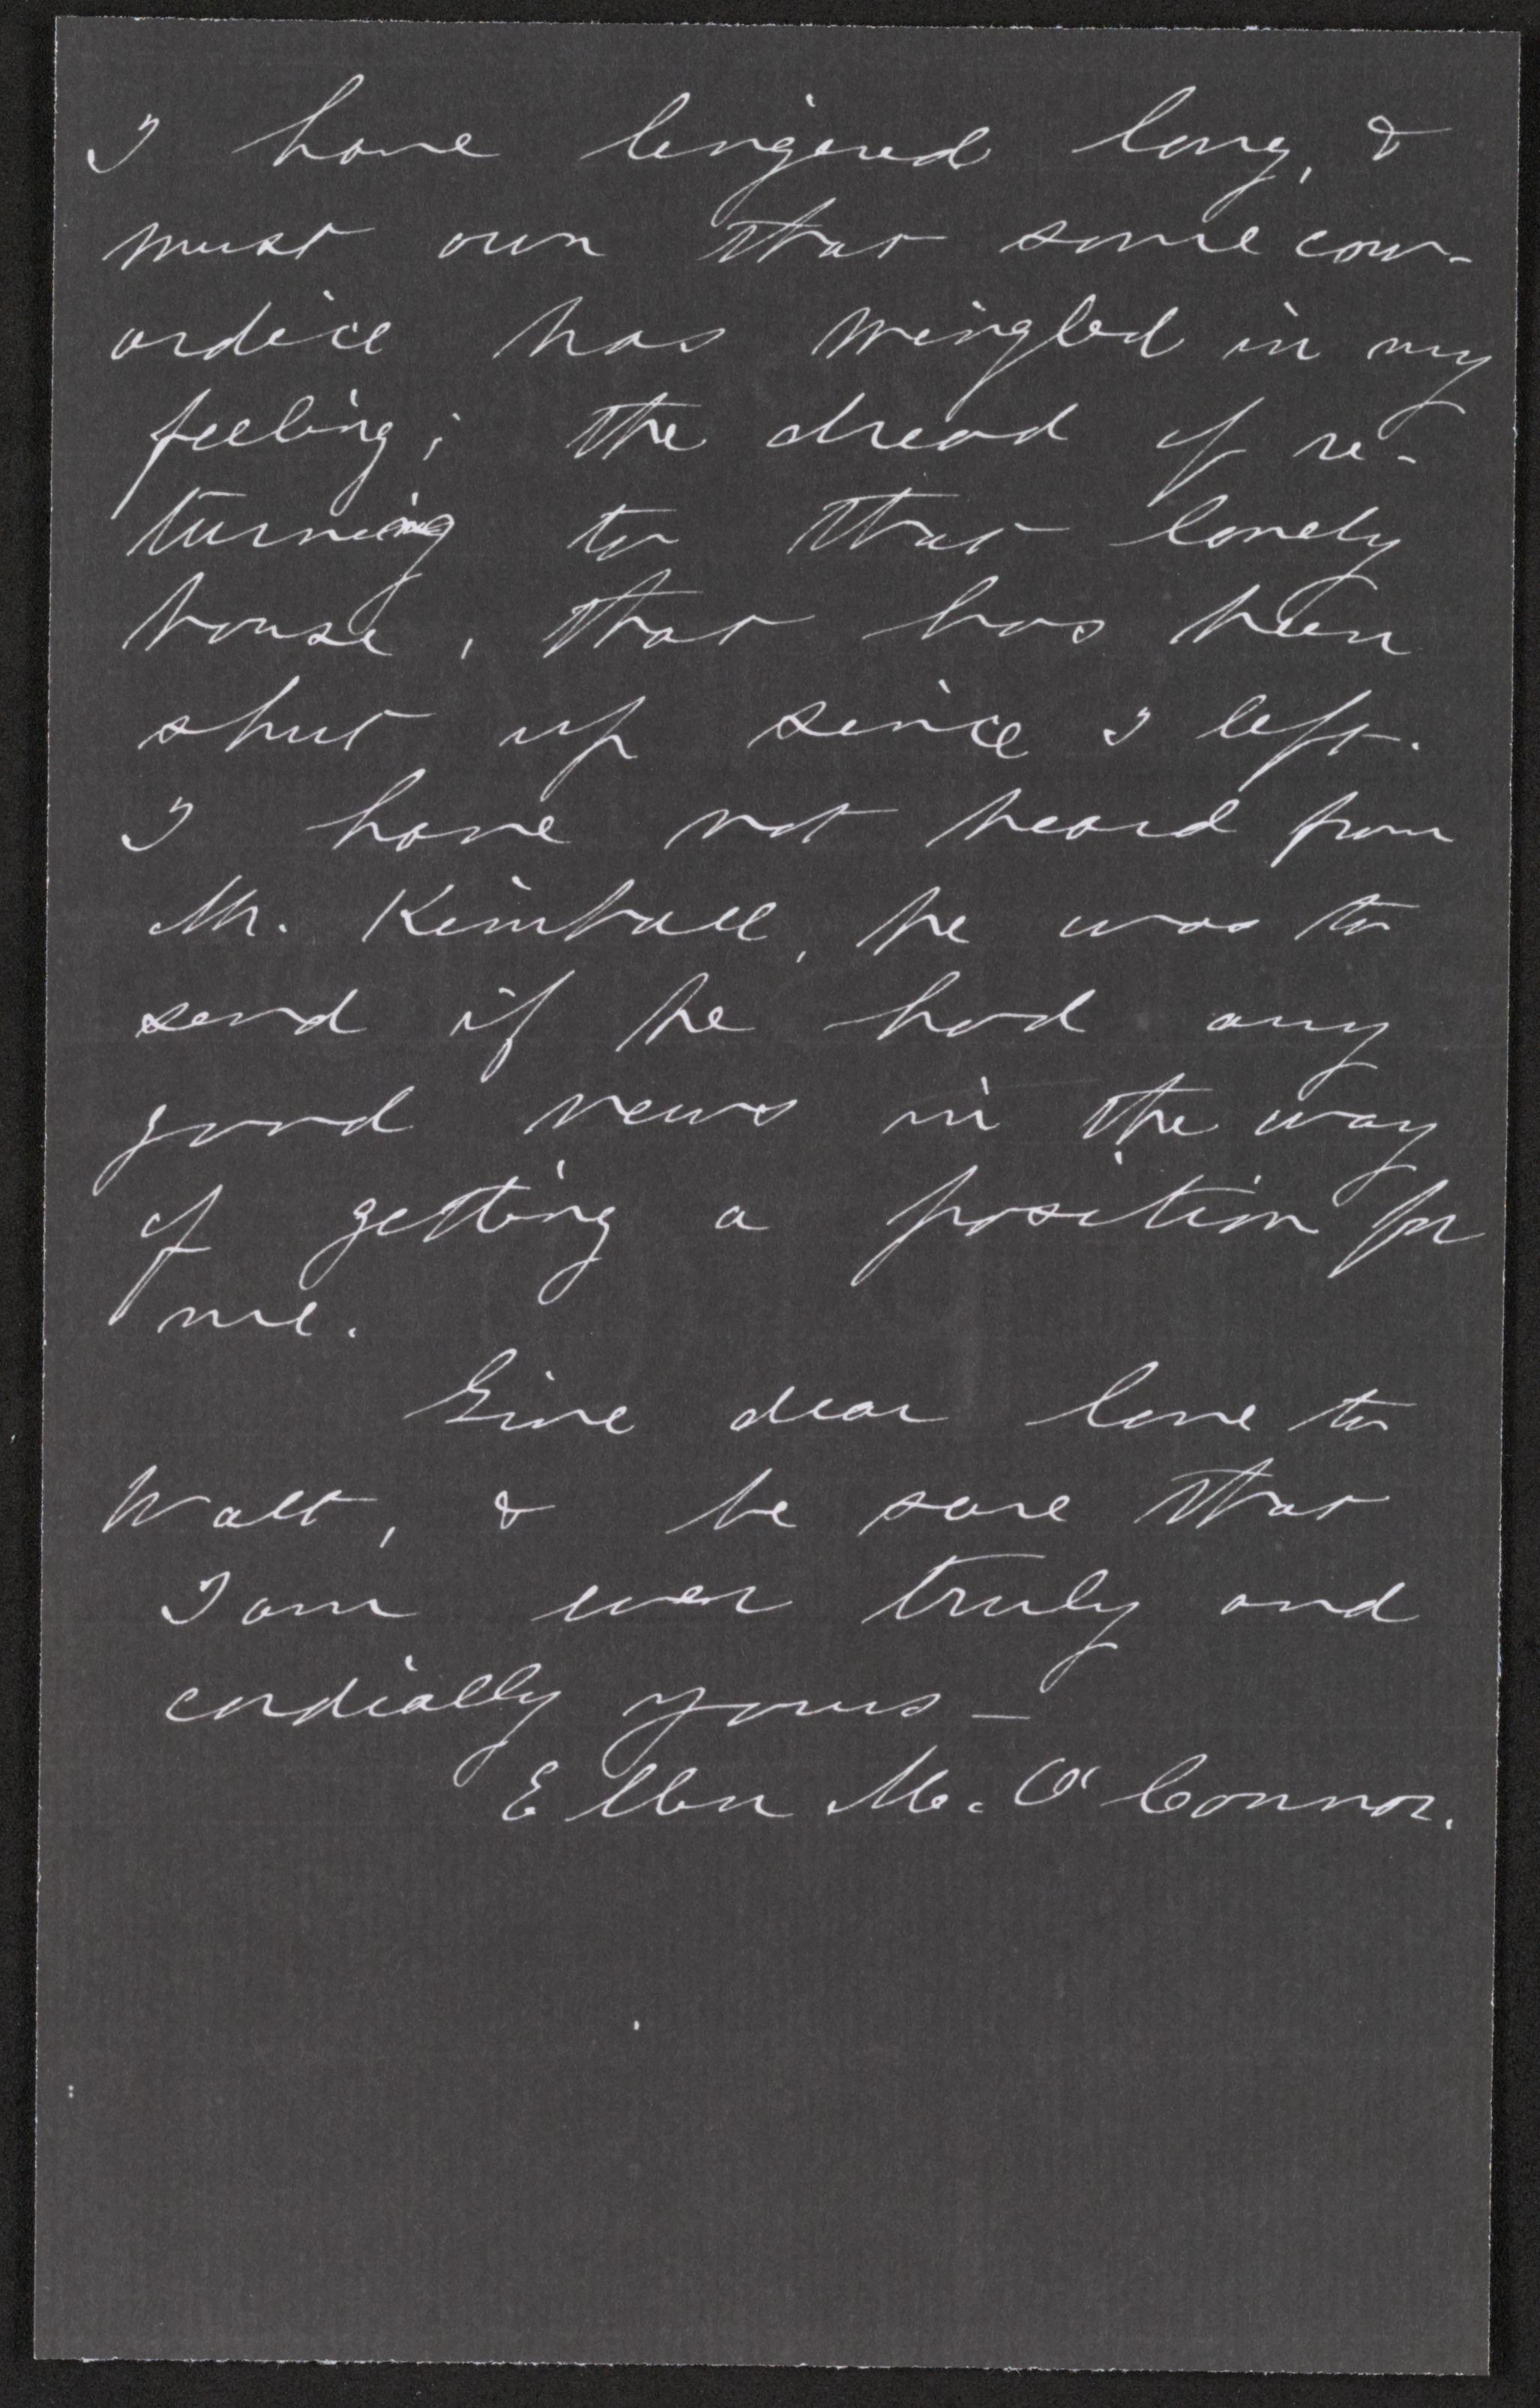 I have lingered long, &
must own that some cow-
ardice has mingled in my
feeling; the dread of re-
turning to that lonely
house, that has been
shut up since I left.
I have not heard from
Mr. Kimball, he was to
send if he had any
good news in the way
of getting a position for
me.
Give dear love to
Walt, & be sure that
I am ever truly and
cordially yours—
Ellen M. O'Connor.